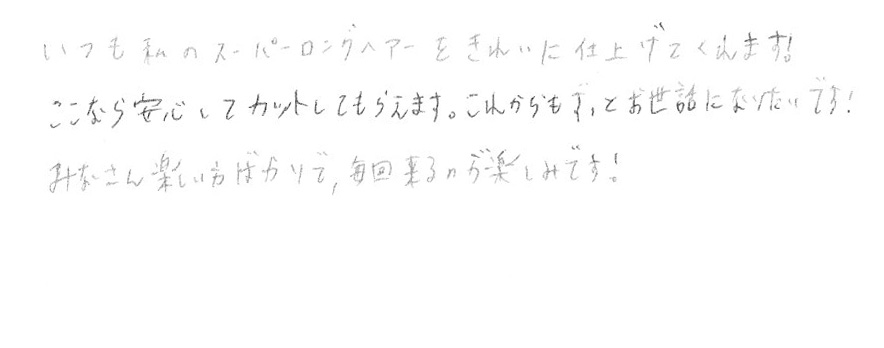 いつも私のスーパーロングヘアーをきれいに仕上げてくれます!
ここなら安心してカットしてもらえます。これからもずっとお世話になりたいです!
みなさん楽しい方ばかりで,毎回来るのが楽しみです!